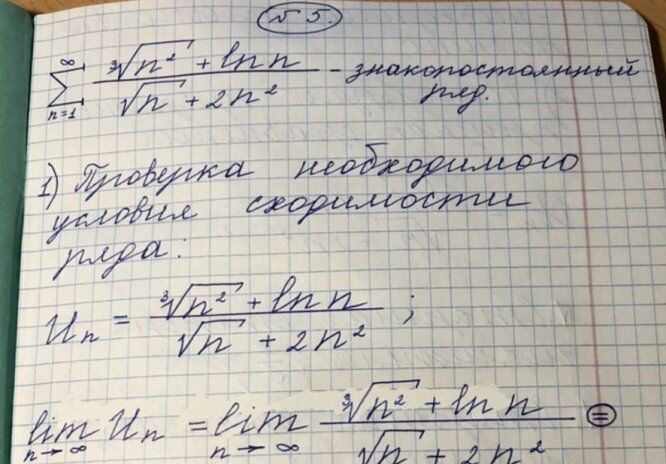 № 5.
∞ ∑ n=1 (∛n² + ln n)/(√n + 2n²) - знакопостоянный
ряд.
1) Проверка необходимого
условия сходимости
ряда:
Uₙ = (∛n² + ln n)/(√n + 2n²) ;
lim n→∞ Uₙ = lim n→∞ (∛n² + ln n)/(√n + 2n²) =